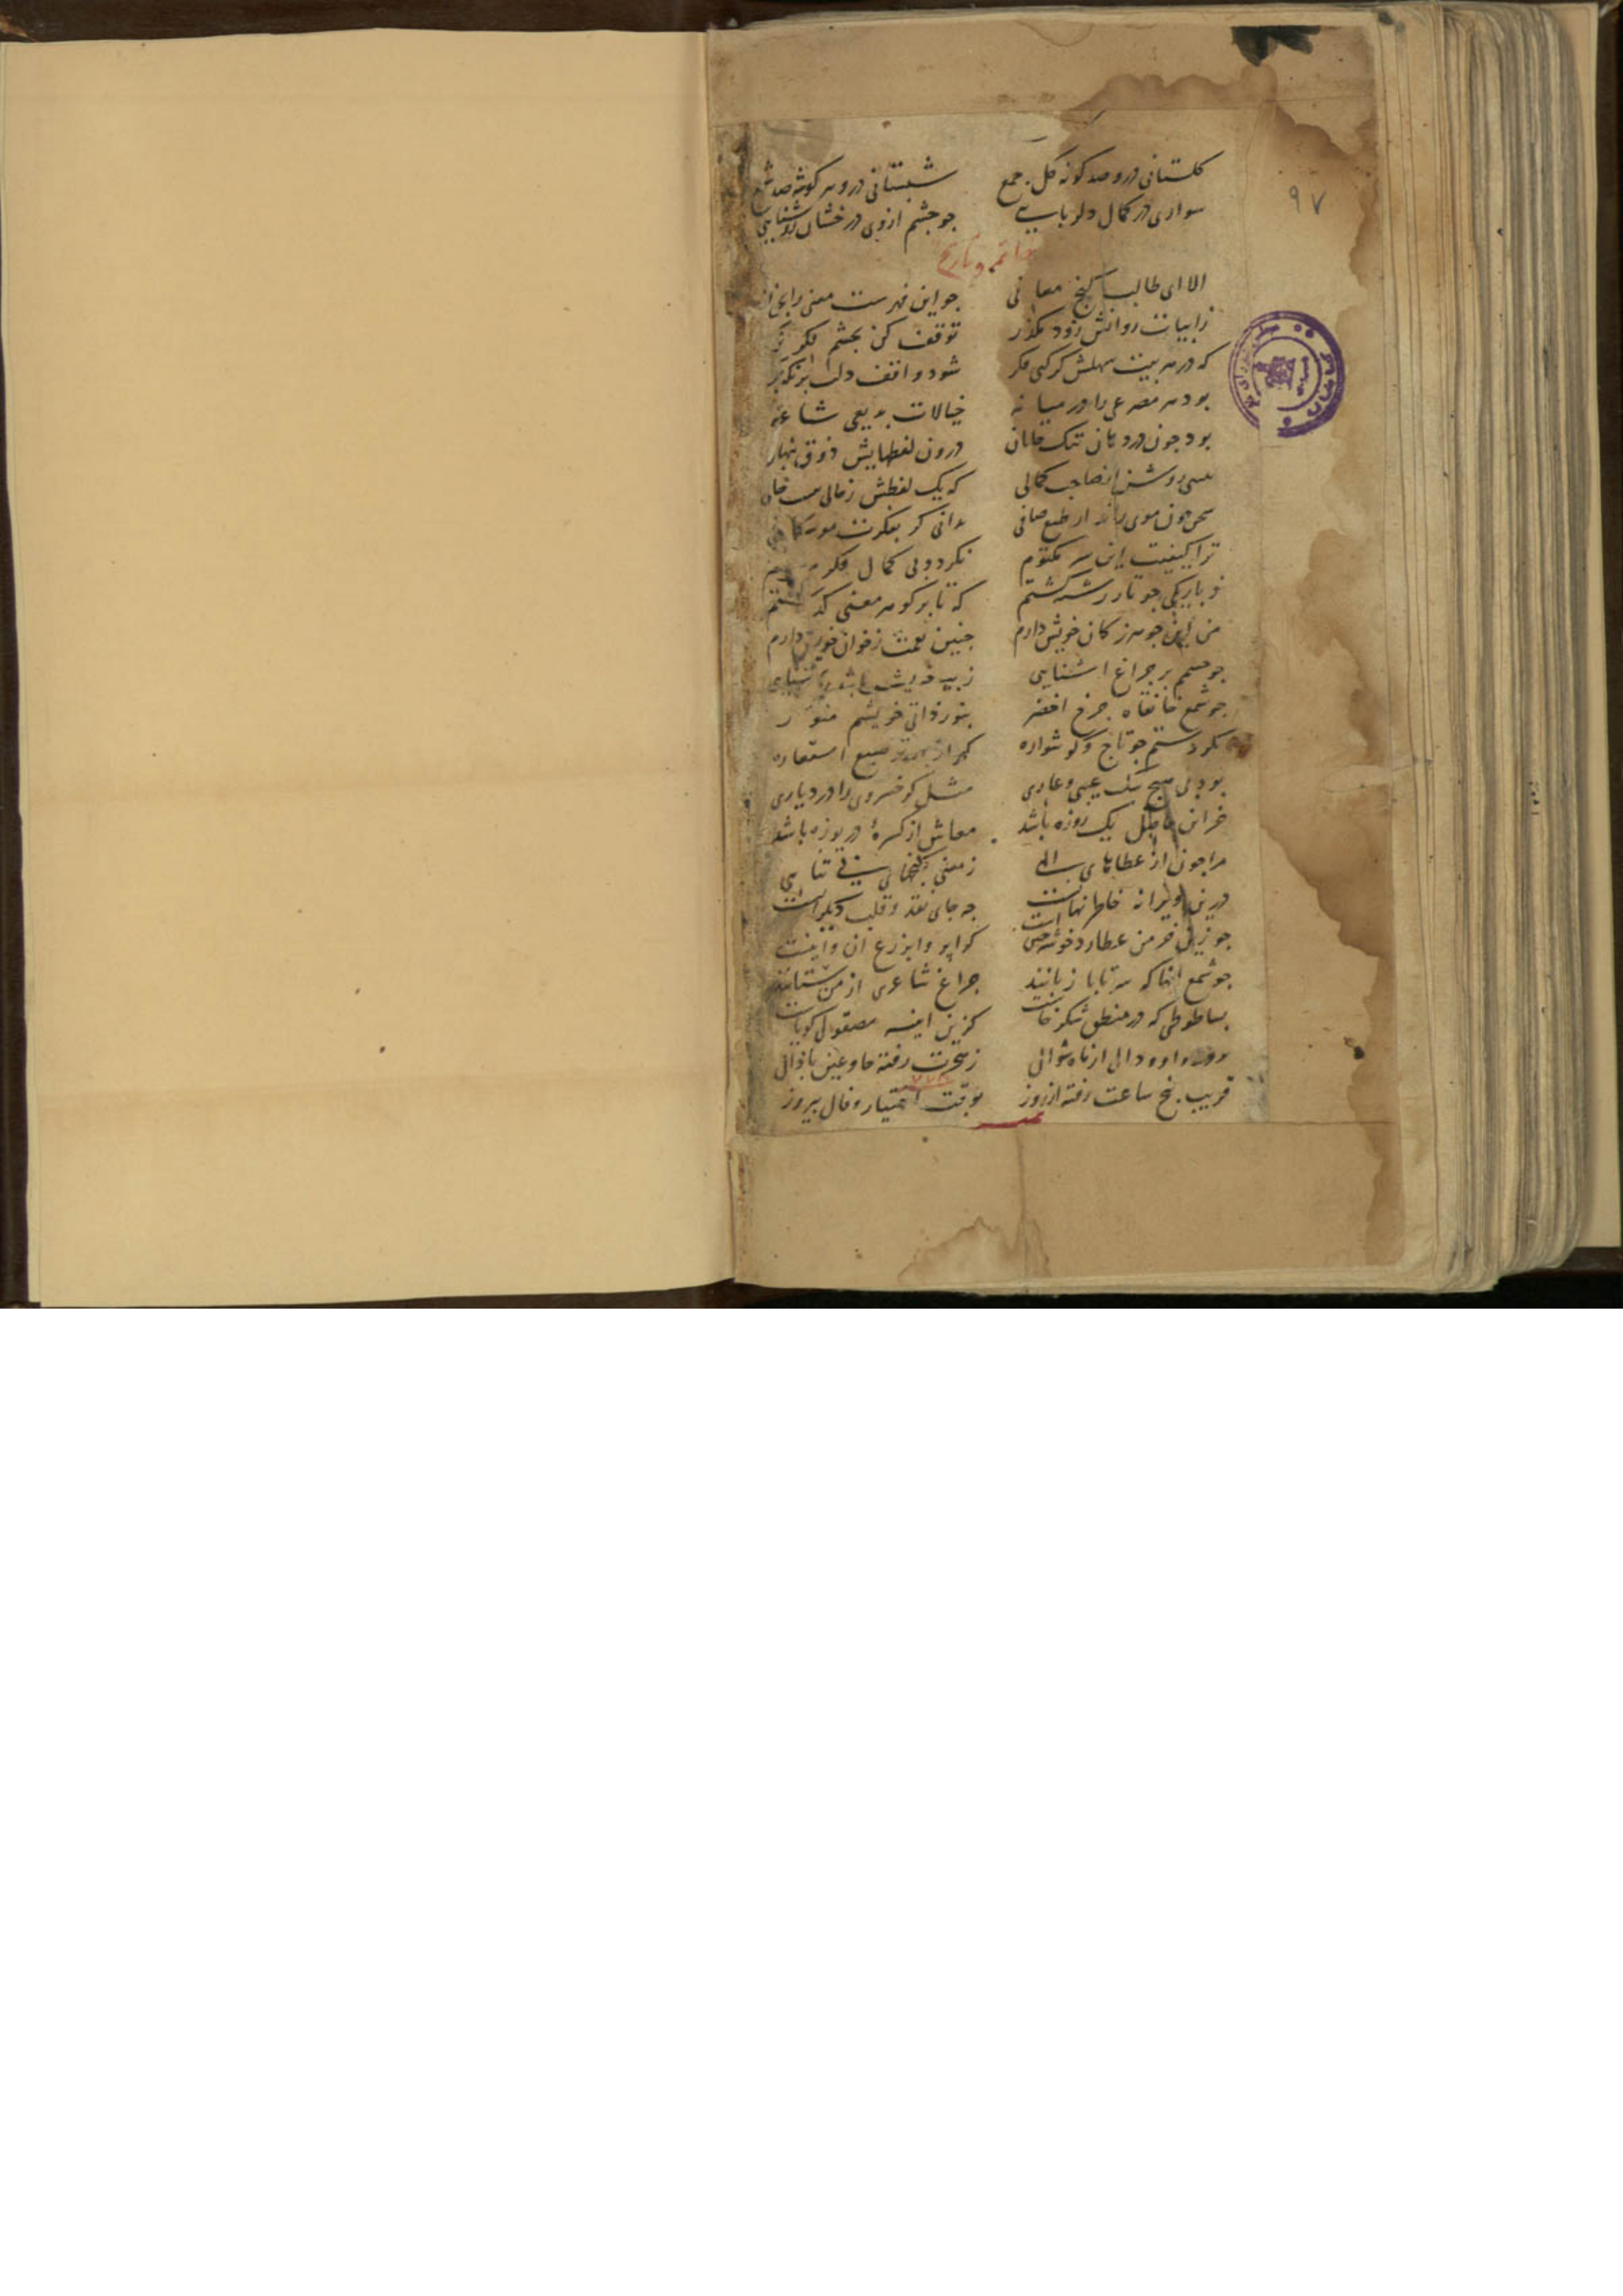 ۹۷
کلستانی درو صد کونه کل جمع شبستانی درو هر کوشه صد شمع
سوادی در کمال دلربایی جو جشم از وی درخشان روشنایی
خاتمه و تاریخ
الا ای طالب کنج معانی جو این فهرست معنی را بخوانی
ز ابیات روانش زود مکذر توقف کن بجشم فکر
که در هر بیت سهلش کر کنی فکر شود واقف دلت بر نکته
بود هر مصرعی را در میانه خیالات بدیعی شاعرانه
بود جون در دهان تنک درون لفظهایش ذوق
روشن صاحب کمالی که یک لفظش ز حالی نیست خالی
سخن جون موی طبع صافی بدانی کر بفکرت مو شکافی
ترا کیفیت این سر مکتوم نکردد بی کمال فکر
ز باریکی جو تار رشته کشتم که تا بر کوهر معنی کذشتم
من این جوهر ز کان خویش دارم جنین نعمت ز خوان خویش دارم
جو جشمم بر جراغ اشنایی ز خویش باشد روشنایی
جو شمع خانقاه جرخ اخضر بنور ذاتی خویشم منور
نکردستم جو تاج و کوشواره کهر از بهر ترصیع استعاره
بود بی هیج شک عیبی و عاری مثل کر خسروی را در دیاری
خراج حاصل یک روزه باشد معاش از کسرهٔ دریوزه باشد
مرا جون از عطاهای الهی ز معنی کنجهای تناهی
درین ویرانه خاطر نهانست جه جای نقد و قلب دیکرانست
جو زین خرمن عطارد خوشه جین است کرا بروا بزرع ان و اینست
جو شمع انها که سر تا با زبانند جراغ شاعری از من ستانند
بسا طوطی که در منطق شکر خاست کزین اینه مصقول کویاست
دالی از ماه شوالی ز هجرت رفته عین با ذالی
قریب بنج ساعت رفته از روز بوقت اختیار و فال بیروز